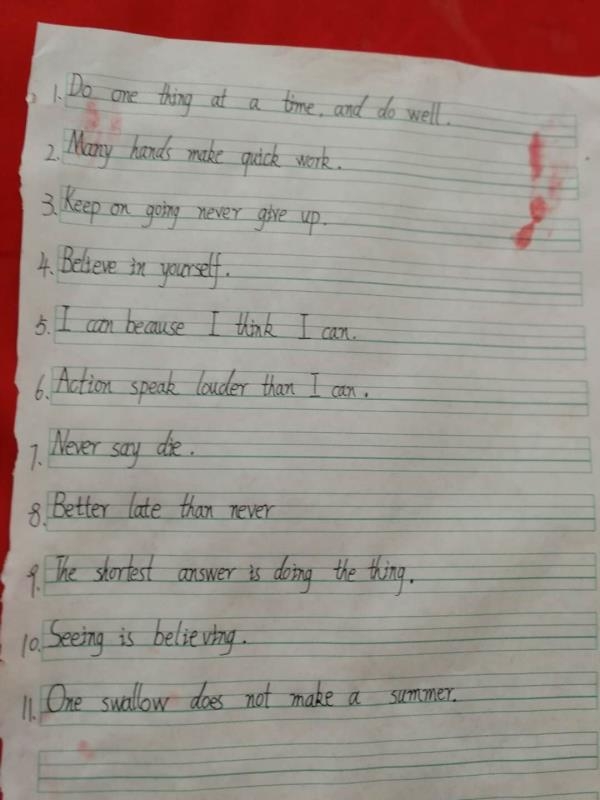 1. Do one thing at a time, and do well.
2. Many hands make quick work.
3. Keep on going never give up.
4. Believe in yourself.
5. I can because I think I can.
6. Action speak louder than I can.
7. Never say die.
8. Better late than never
9. The shortest answer is doing the thing.
10. Seeing is believing.
11. One swallow does not make a summer.